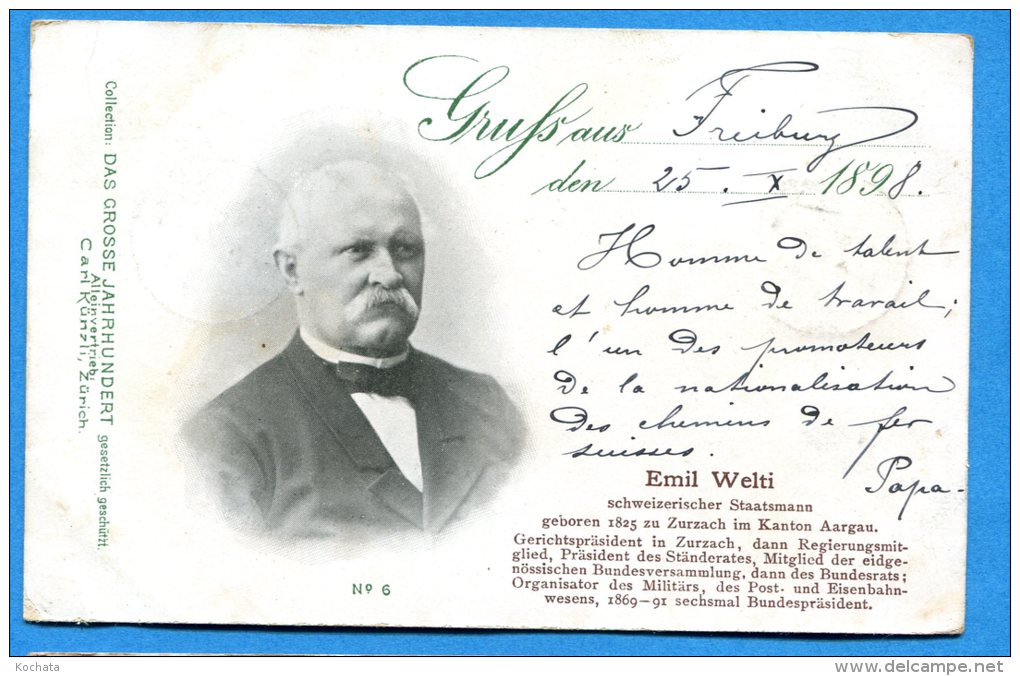 Collection: DAS GROSSE JAHRHUNDERT gesetzlich geschützt.
Alleinvertrieb:
Carl Künzli, Zürich.
Gruss aus Freiburg
den 25. X 1898.
Homme de talent
et homme de travail;
l'un des promoteurs
de la nationalisation
des chemins de fer
suisses.
Papa-
Emil Welti
schweizerischer Staatsmann
geboren 1825 zu Zurzach im Kanton Aargau.
Gerichtspräsident in Zurzach, dann Regierungsmit-
glied, Präsident des Ständerates, Mitglied der eidge-
nössischen Bundesversammlung, dann des Bundesrats;
Organisator des Militärs, des Post- und Eisenbahn-
wesens, 1869-91 sechsmal Bundespräsident.
Nº 6
Kochata
www.delcampe.net